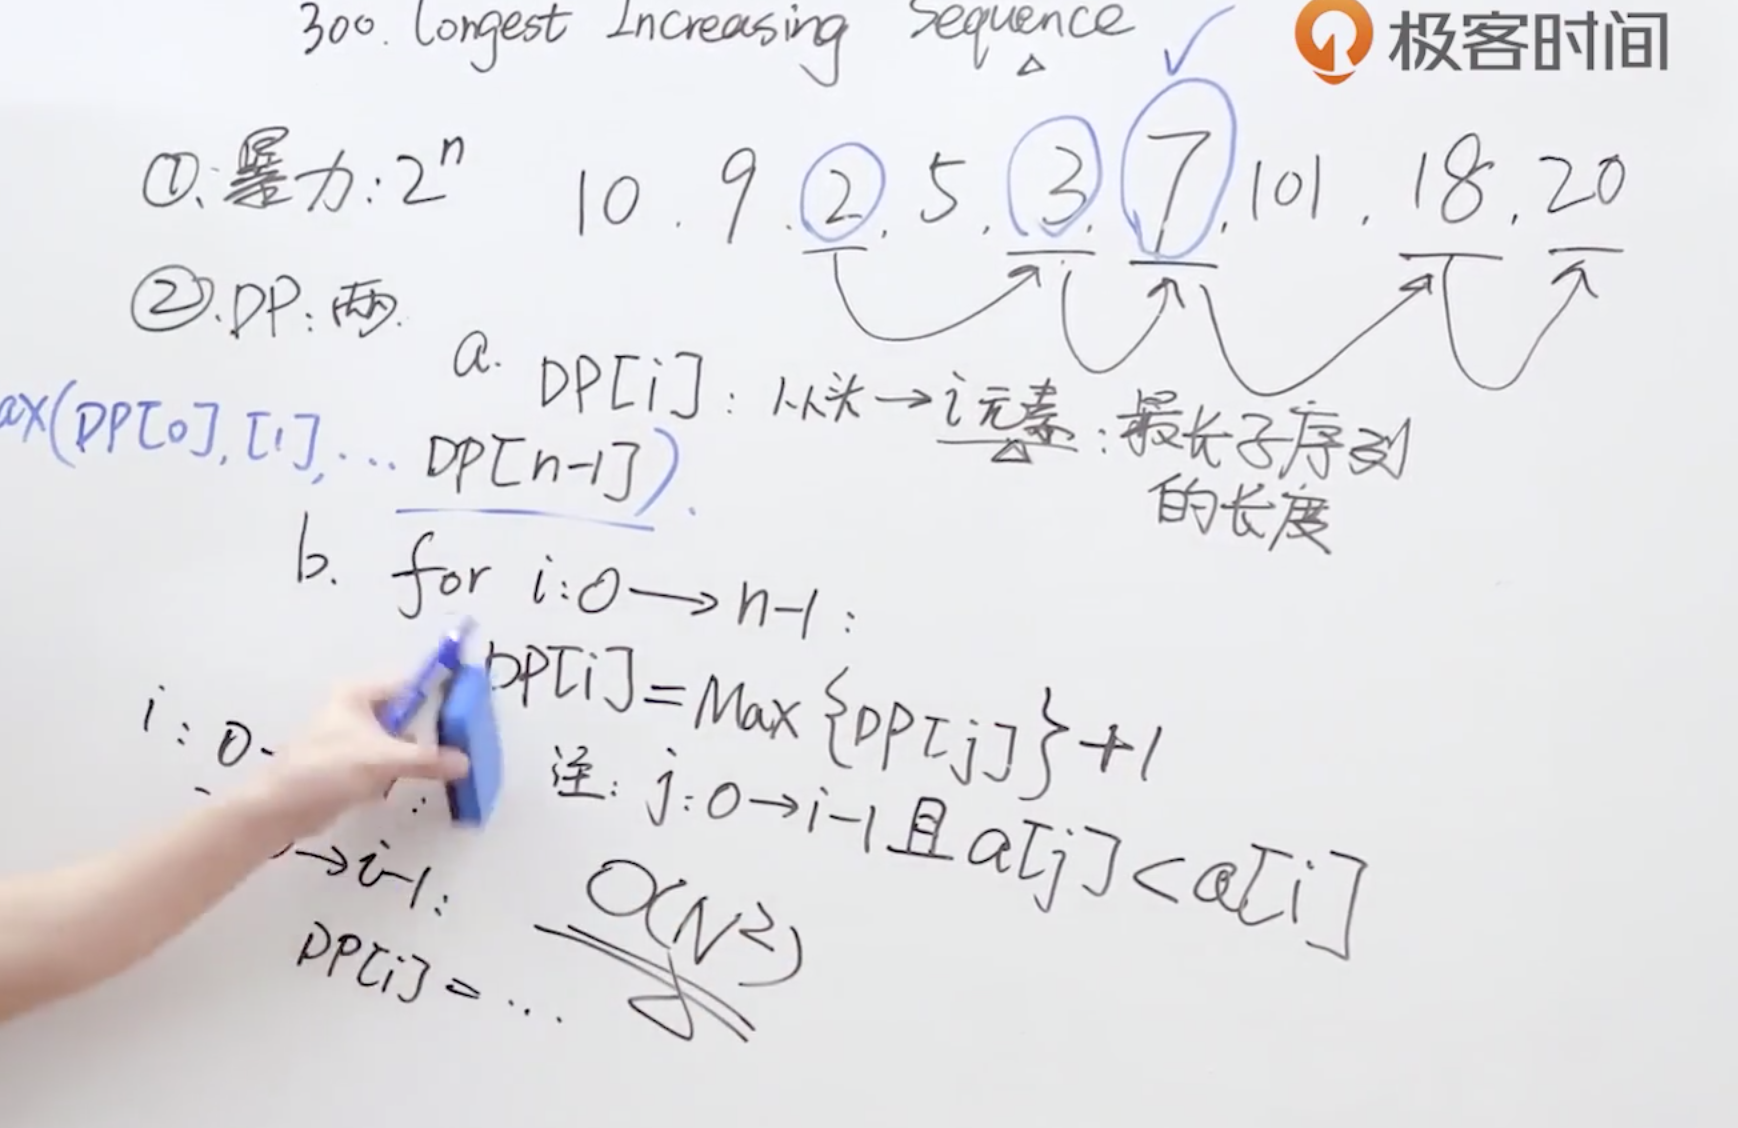 300. Longest Increasing Sequence
极客时间
①. 暴力: 2^n
10 . 9 . 2 , 5 , 3 , 7 , 101 , 18 , 20
②. DP: 两.
a. DP[i]: 从头→i元素: 最长子序列
的长度
ax(DP[0], [1], ... DP[n-1]).
b. for i:0→n-1:
DP[i]=Max{DP[j]}+1
注: j:0→i-1且a[j]<a[i]
i: 0-
→i-1:
DP[i]=...
O(N²)